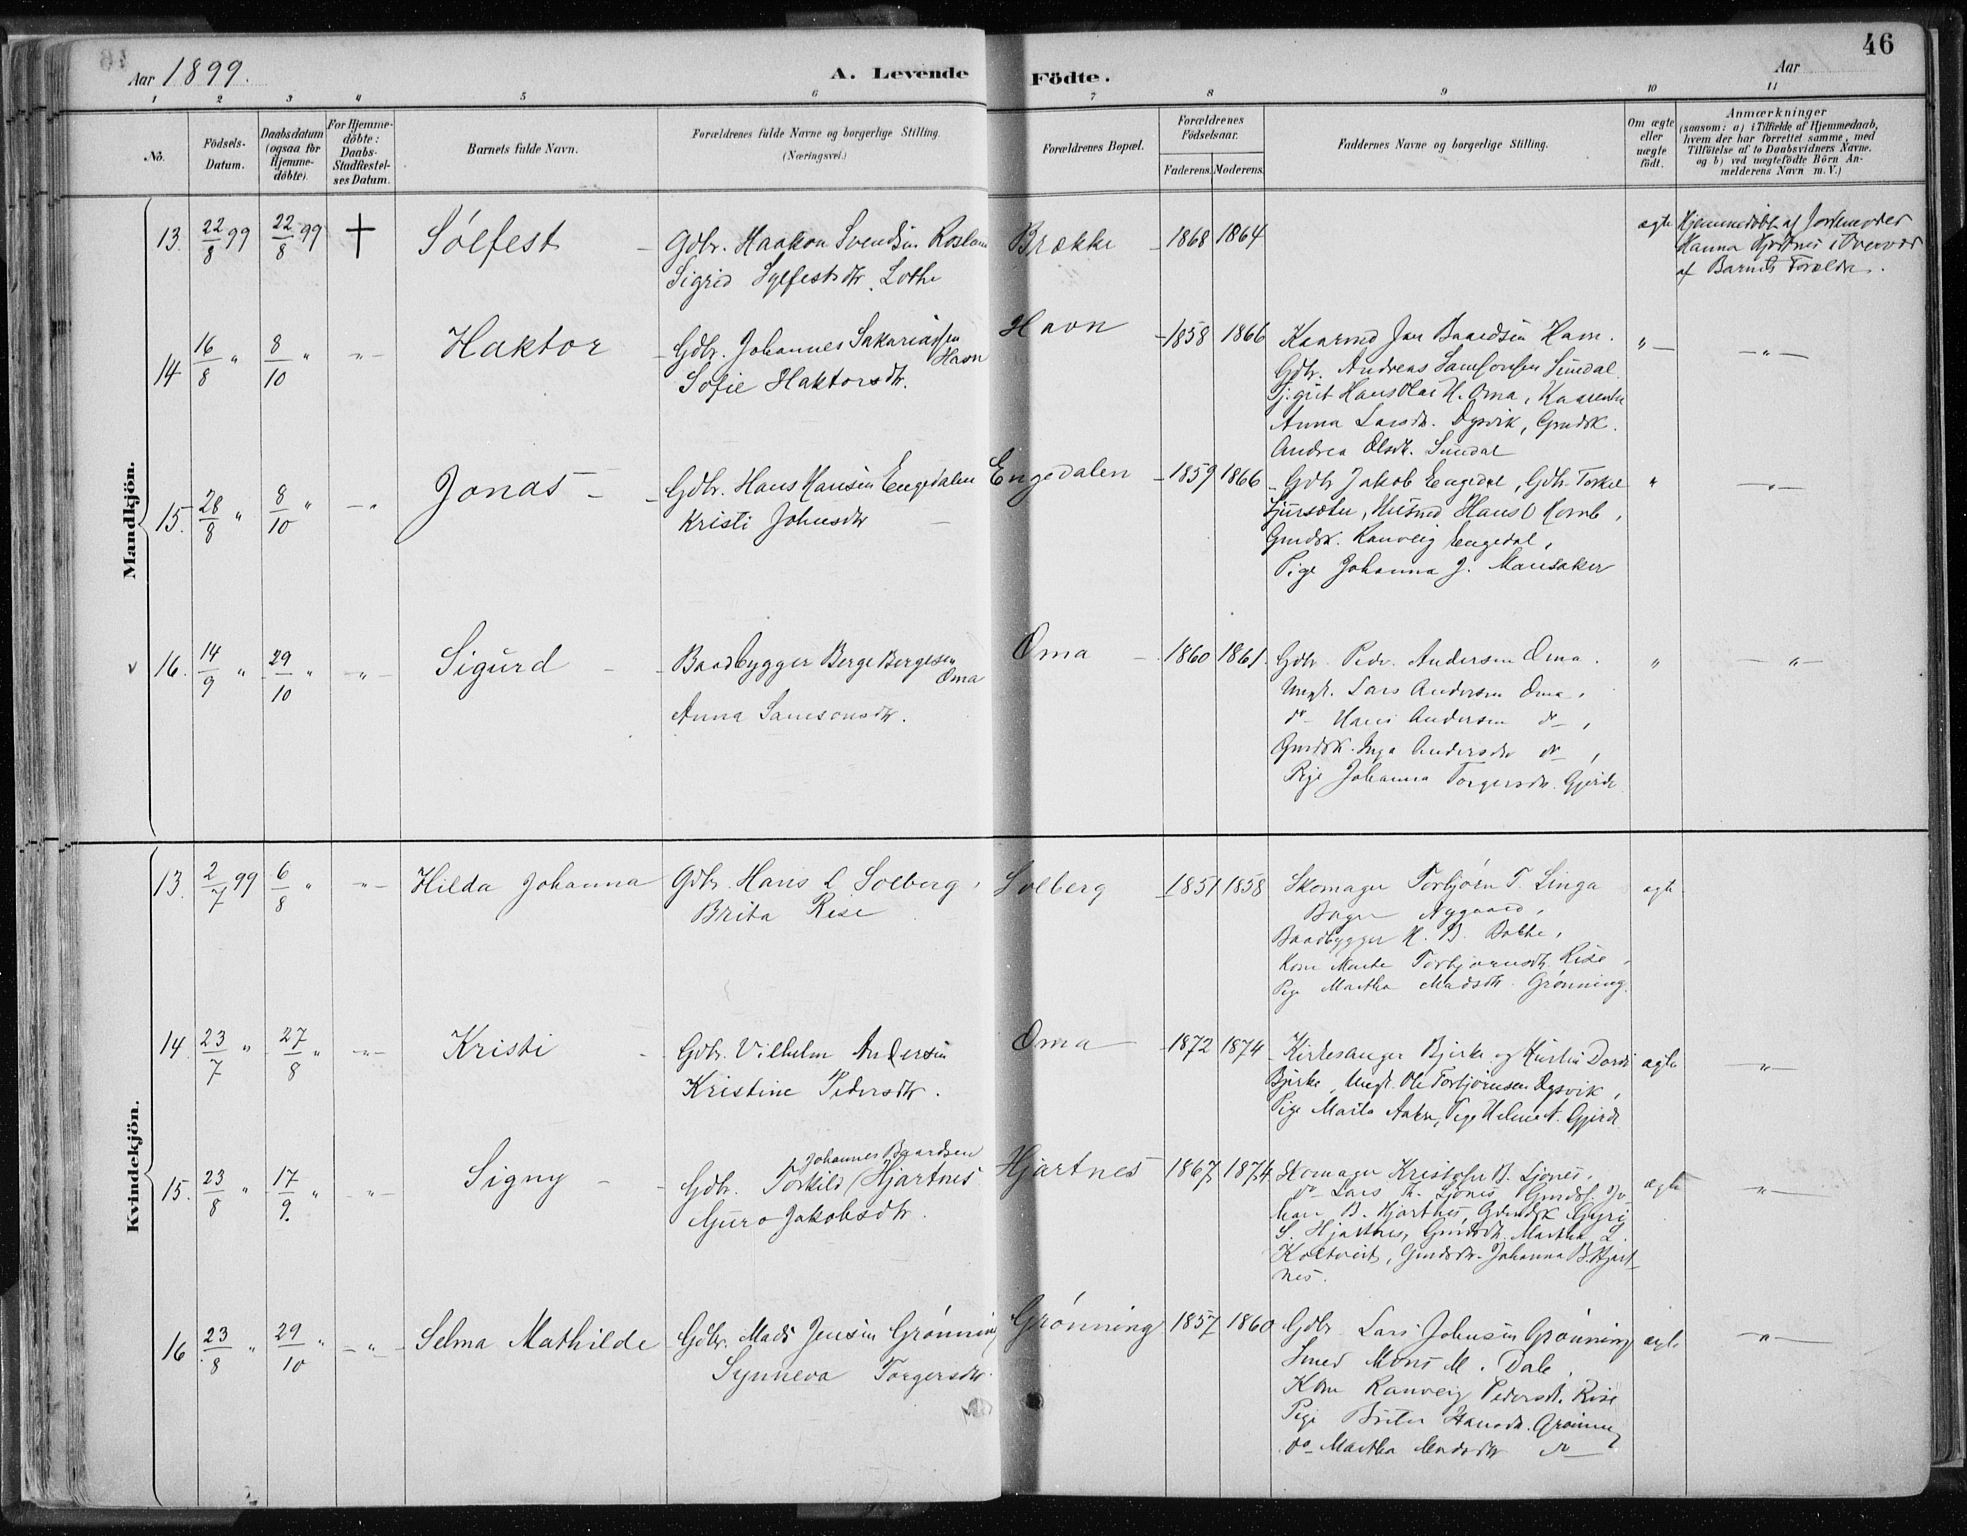 Aar 1899.
A. Levende Födte.
Aar
46
1 2 3 4 5 6 7 8 9 10 11
Nö.
Födsels-Datum.
Daabsdatum (ogsaa för Hjemmedöbte).
For Hjemmedöbte: Daabs-Stadfæstelses Datum.
Barnets fulde Navn.
Forældrenes fulde Navne og borgerlige Stilling.
(Næringsvei.)
Forældrenes Bopæl.
Forældrenes Födselsaar.
Faderens. Moderens.
Faddernes Navne og borgerlige Stilling.
Om ægte eller uægte födt.
Anmærkninger
(saasom: a) i Tilfælde af Hjemmedaab,
hvem der har forrettet samme, med
Tilföielse af to Daabsvidners Navne.
og b) ved uægtefödte Börn An-
melderens Navn m. V.)
Mandkjön.
13. 22/8 99 22/8 99 † Sólfest Gdbr. Haakon Svendsen
Sigrid Sylfestsdtr. Lothe
Brække 1868 1864
ægte Hjemmedöbt af Jordmoder
Hanna Hjartnes i Overvær
af Barnets Forældre.
14 16/8 " 8/10 " -"- Haktor Gdbr. Johannes Sakariassen Havn
Sofie Haktorsdtr.
Havn 1858 1866 Kaarmd Jon Baardsen Havn.
Gdbr. Andreas Samsonsen Sundal
Tj.gut Hans Olai H. Oma, Kaarenke
Anna Larsdtr. Dysvik, Gmdsk.
Andrea Olsdtr. Sundal
" -"-
15. 28/8 " 8/10 " -"- Jonas Gdbr. Hans Hansen Engedalen
Kristi Johnsdtr
Engedalen 1859 1866 Gdbr Jakob Engedal, Gdbr. Torkel
Husmd Hans O
Gmdsk. Ranveig Engedal,
Pige Johanna J. Mansaker
" -"-
16. 14/9 " 29/10 " -"- Sigurd Baadbygger Berge Bergesen Oma
Anna Samsonsdtr.
Oma 1860 1861. Gdbr. Peder Andersen Oma.
Ungk. Lars Andersen Oma,
do Hans Andersen do,
Gmdsk. Inga Andersdtr do,
Pige Johanna Torgersdtr. Gjerde
" -"-
Kvindekjön.
13. 2/7 99 6/8 " -"- Hilda Johanna Gdbr. Hans L Solberg,
Brita Rise
Solberg 1851 1858 Skomager Torbjörn T. Linga
Bager Nygaard,
Baadbygger H. B.
Kone Marta Torbjörnsdtr Rise,
Pige Martha Madsdtr. Grönning.
ægte
14. 23/7 " 27/8 " -"- Kristi Gdbr. Vilhelm Andersen
Kristine Pedersdtr.
Oma 1872 1874 Kirkesanger Bjerke og Hustru Dordi
Bjerke, Ungk. Ole Torbjörnsen Dysvik,
Pige Marta Aaen, Pige Helene A. Gjerde
ægte -"-
15. 23/8 " 17/9. " -"- Signy Johannes Baardsen
Gdbr. Torkild (Hjartnes
Guro Jakobsdtr.
Hjartnes 1867 1874 Skomager Kristofer B. Ljones,
do Lars Th. Ljones
B. Hjartnes, Gmdsk Gyri
S. Hjartnes, Gmdsdtr. Martha L.
Koltveit, Gmdsdtr. Johanna B. Hjart-
nes.
ægte -"-
16 23/8 " 29/10 " -"- Selma Mathilde Gdbr. Mads Jensen Grönning
Synneva Torgersdtr.
Grönning 1857 1860 Gdbr Lars Johnsen Grönning
Smed Mons M. Dale,
Kone Ranveig Pedersdt. Rise
Pige Brita Hansdtr. Grönning
do Martha Madsdtr do
ægte -"-